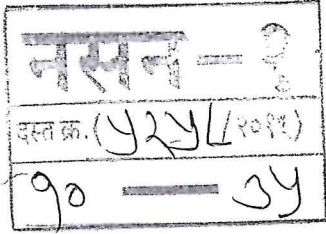 नसन - २
दस्त क्र. (५२५८/२०१९)
१० — ३५